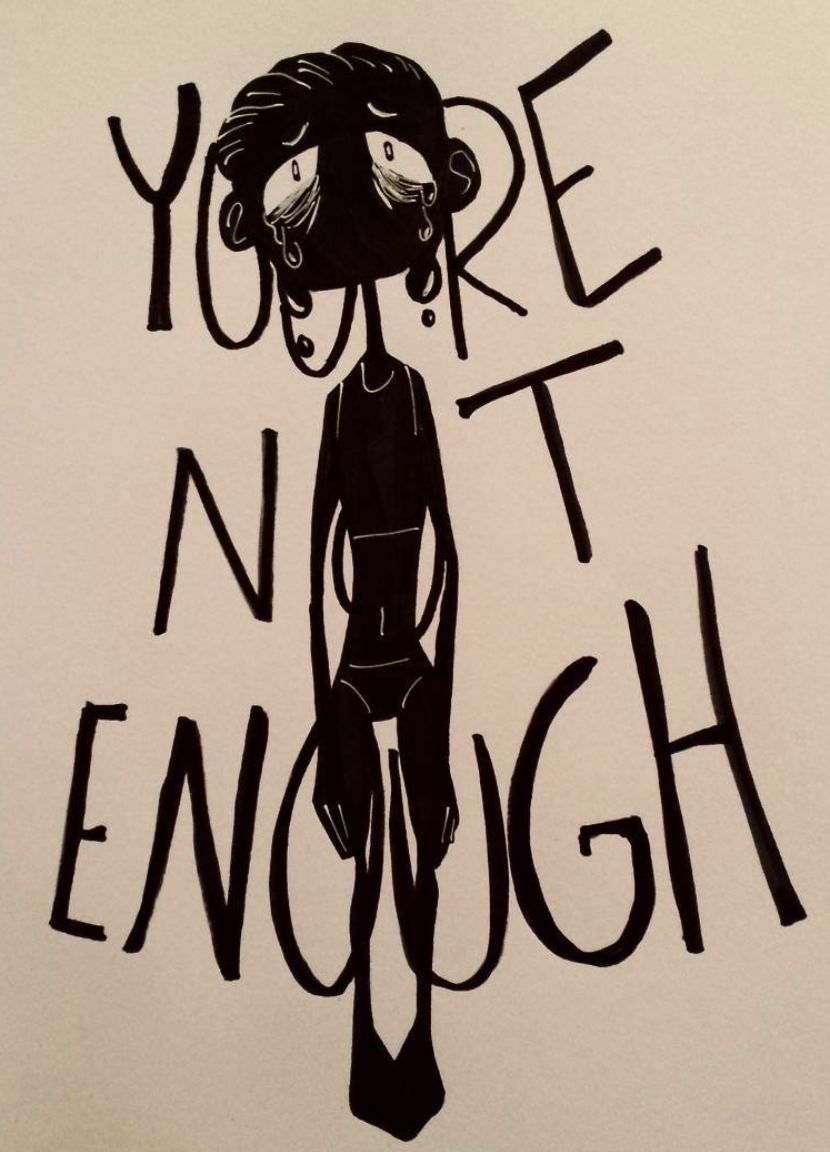 YOURE
NOT
ENOUGH